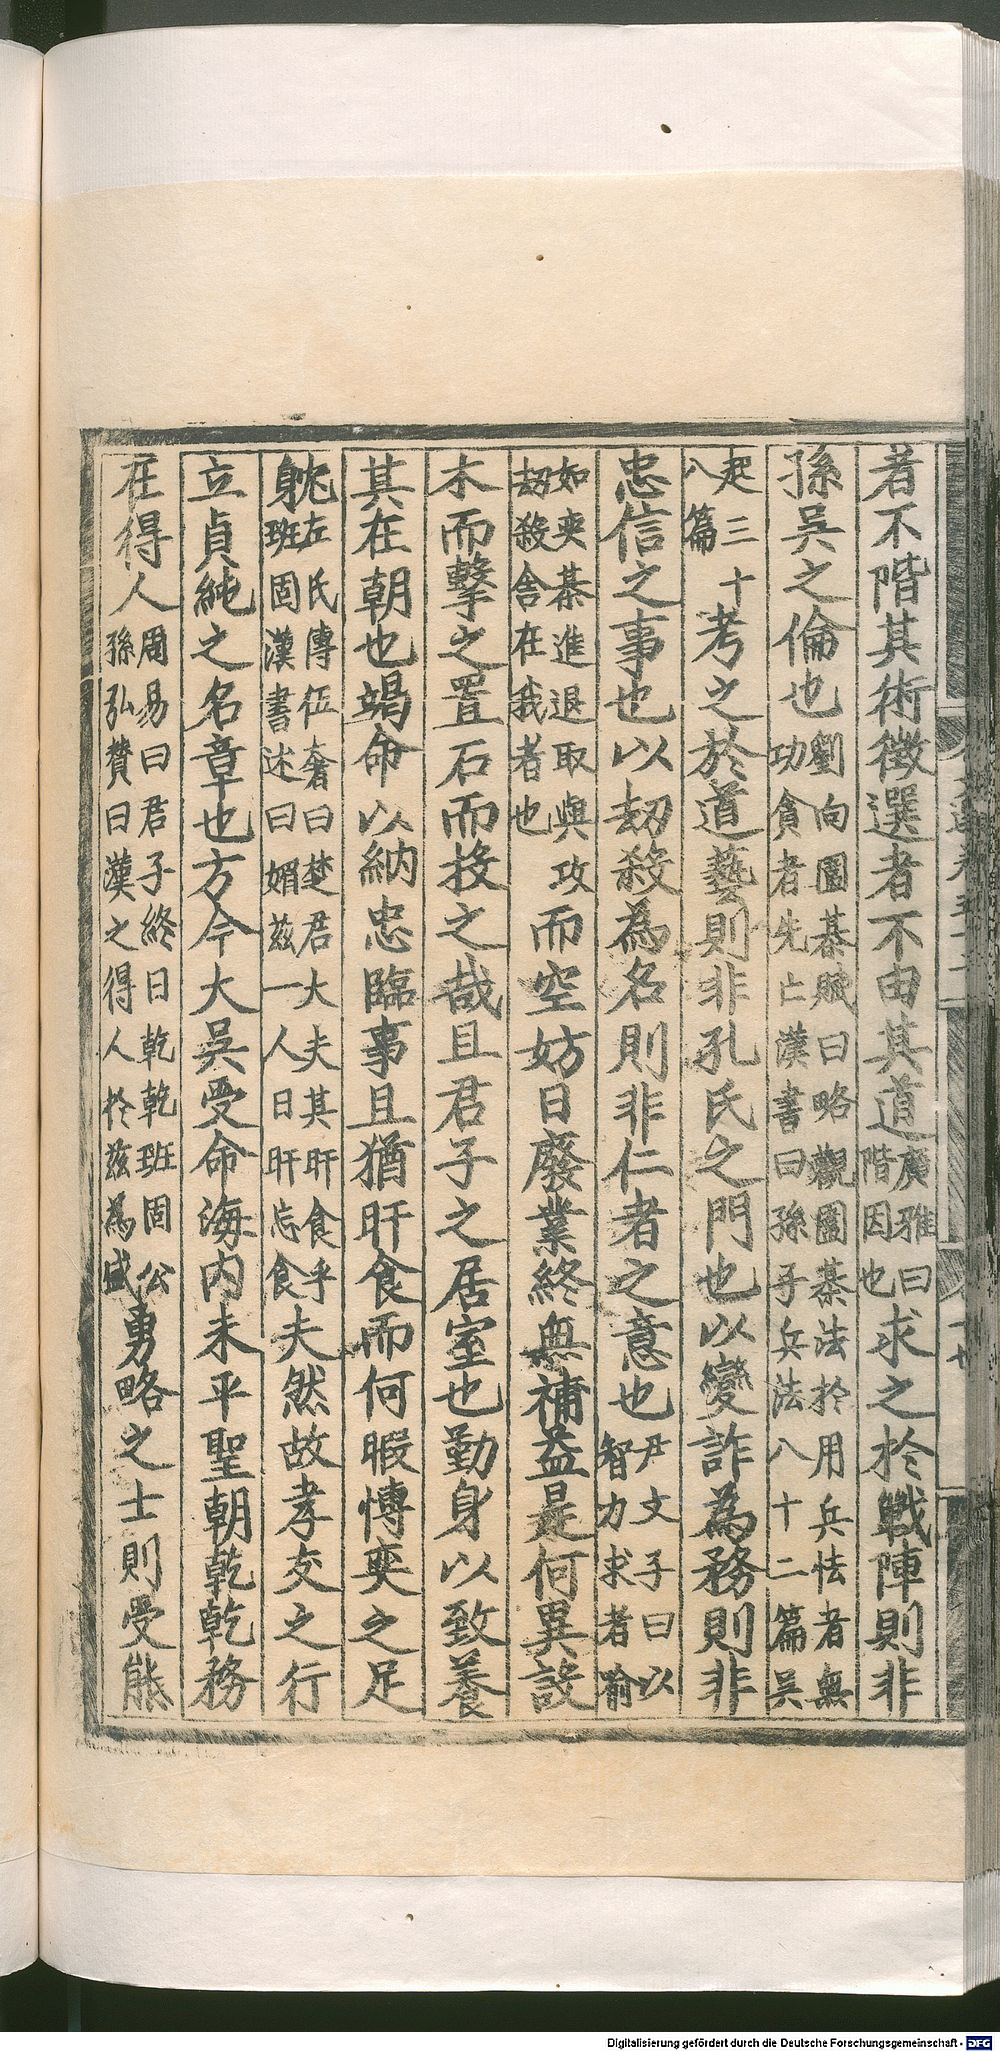 者不階其術徵選者不由其道廣雅曰階因也求之於戰陣則非
孫吳之倫也劉向圍棊賦曰略觀圍棊法於用兵怯者無功貪者先亡漢書曰孫子兵法八十二篇吳
起三十八篇考之於道藝則非孔氏之門也以變詐為務則非
忠信之事也以劫殺為名則非仁者之意也尹文子曰以智力求者喻
如奕棊進退取與攻劫殺舍在我者也而空妨日廢業終無補益是何異設
木而擊之置石而投之哉且君子之居室也勤身以致養
其在朝也竭命以納忠臨事且猶旰食而何暇博奕之足
躭左氏傳伍奢曰楚君大夫其旰食乎班固漢書述曰媚茲一人日旰忘食夫然故孝友之行
立貞純之名章也方今大吳受命海內未平聖朝乾乾務
在得人周易曰君子終日乾乾班固公孫弘贊曰漢之得人於茲為盛勇略之士則受熊
Digitalisierung gefördert durch die Deutsche Forschungsgemeinschaft - DFG